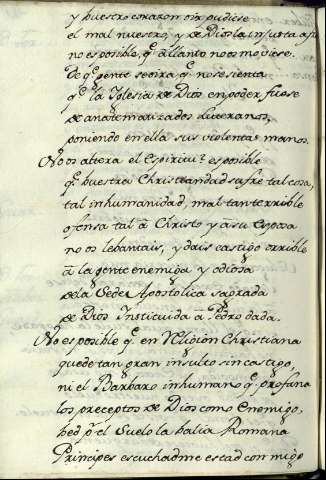 y buestro corazon oir pudiese
el mal nuestro, y de Dios la injusta afr
no es posible, q̃ a llanto no os moviese.
De q̃ gente se oira q̃ no se sienta
q̃ la Iglesia de Dios en poder fuese
de anatematizados luteranos,
poniendo en ella sus violentas manos.
No os altera el Espiritu? es posible
q̃ buestra Christiandad sufre tal cosa,
tal inhumanidad, mal tan terrible
ofensa tal â Christo y â su Esposa
no os lebantais, y dais castigo orrible
â la gente enemiga y odiosa
de la Sede Apostolica sagrada
de Dios Instituida â Pedro dada.
No es posible q̃ en Religion Christiana
quede tan gran insulto sin castigo,
ni el Barbaro inhumano q̃ profana
los preceptos de Dios como Enemigo,
bed p.r el Suelo la balia Romana
Principes escuchadme estad con migo